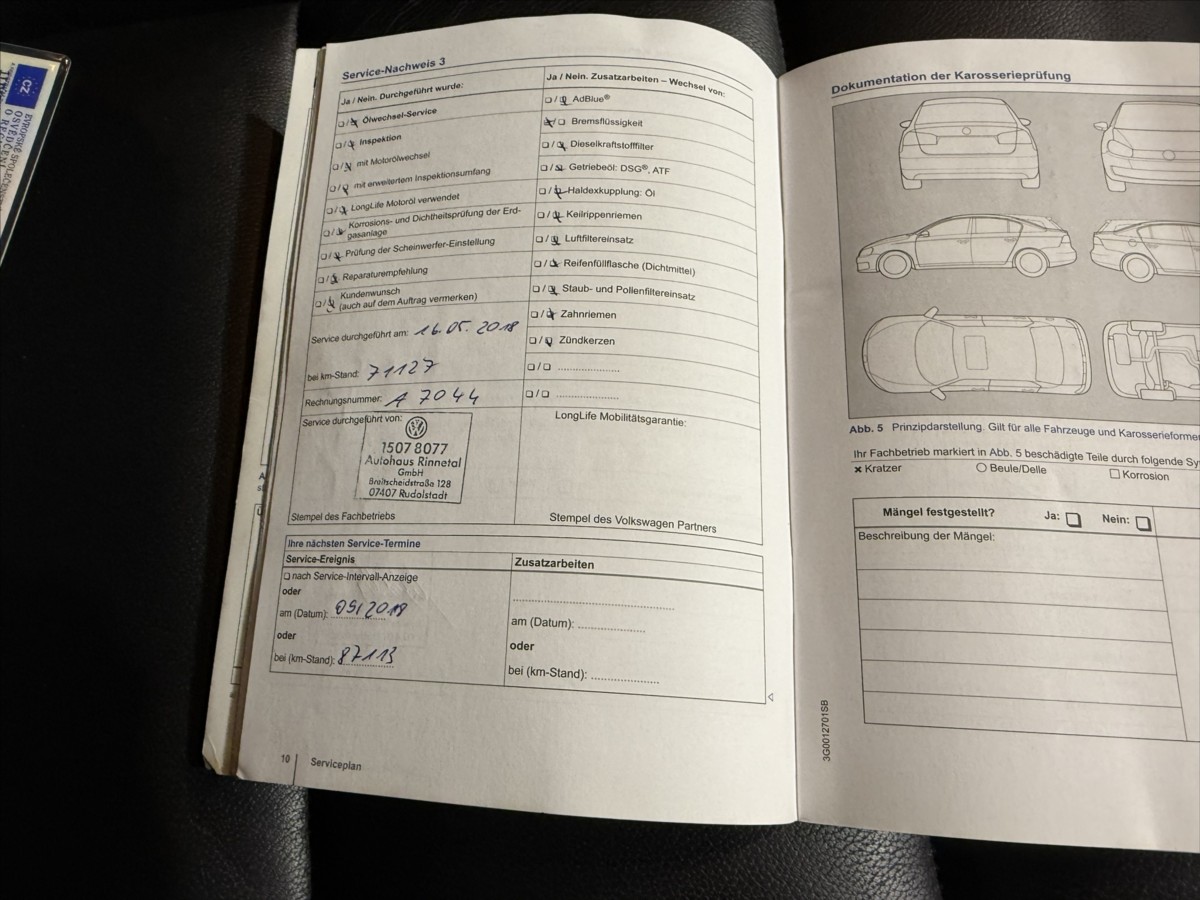 CZ
EVROPSKÉ SPOLEČEN
OSVĚDČENÍ
Service-Nachweis 3
Ja / Nein. Durchgeführt wurde:
Ölwechsel-Service
Inspektion
mit Motorölwechsel
mit erweitertem Inspektionsumfang
LongLife Motoröl verwendet
Korrosions- und Dichtheitsprüfung der Erd-
gasanlage
Prüfung der Scheinwerfer-Einstellung
Reparaturempfehlung
Kundenwunsch
(auch auf dem Auftrag vermerken)
Service durchgeführt am: 16.05. 2018
bei km-Stand: 71127
Rechnungsnummer: A 7044
Service durchgeführt von:
15078077
Autohaus Rinnetal
GmbH
Breitscheidstraße 128
07407 Rudolstadt
Stempel des Fachbetriebs
Ja / Nein. Zusatzarbeiten – Wechsel von:
AdBlue®
Bremsflüssigkeit
Dieselkraftstofffilter
Getriebeöl: DSG®, ATF
Haldexkupplung: Öl
Keilrippenriemen
Luftfiltereinsatz
Reifenfüllflasche (Dichtmittel)
Staub- und Pollenfiltereinsatz
Zahnriemen
Zündkerzen
LongLife Mobilitätsgarantie:
Stempel des Volkswagen Partners
Ihre nächsten Service-Termine
Service-Ereignis
nach Service-Intervall-Anzeige
oder
am (Datum): 09/2018
oder
bei (km-Stand): 87113
Zusatzarbeiten
am (Datum):
oder
bei (km-Stand):
10 Serviceplan
Dokumentation der Karosserieprüfung
Abb. 5 Prinzipdarstellung. Gilt für alle Fahrzeuge und Karosserieforme
Ihr Fachbetrieb markiert in Abb. 5 beschädigte Teile durch folgende Sy
Kratzer Beule/Delle Korrosion
Mängel festgestellt? Ja: Nein:
Beschreibung der Mängel:
3G0012701SB